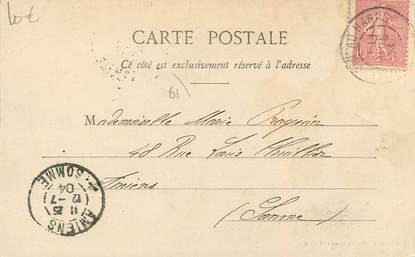 Lot
CARTE POSTALE
Ce côté est exclusivement réservé à l'adresse
19
Mademoiselle Marie
48 Rue Louis Thuillier
Amiens
(Somme)
AMIENS
11 25
12 - 7
04
SOMME